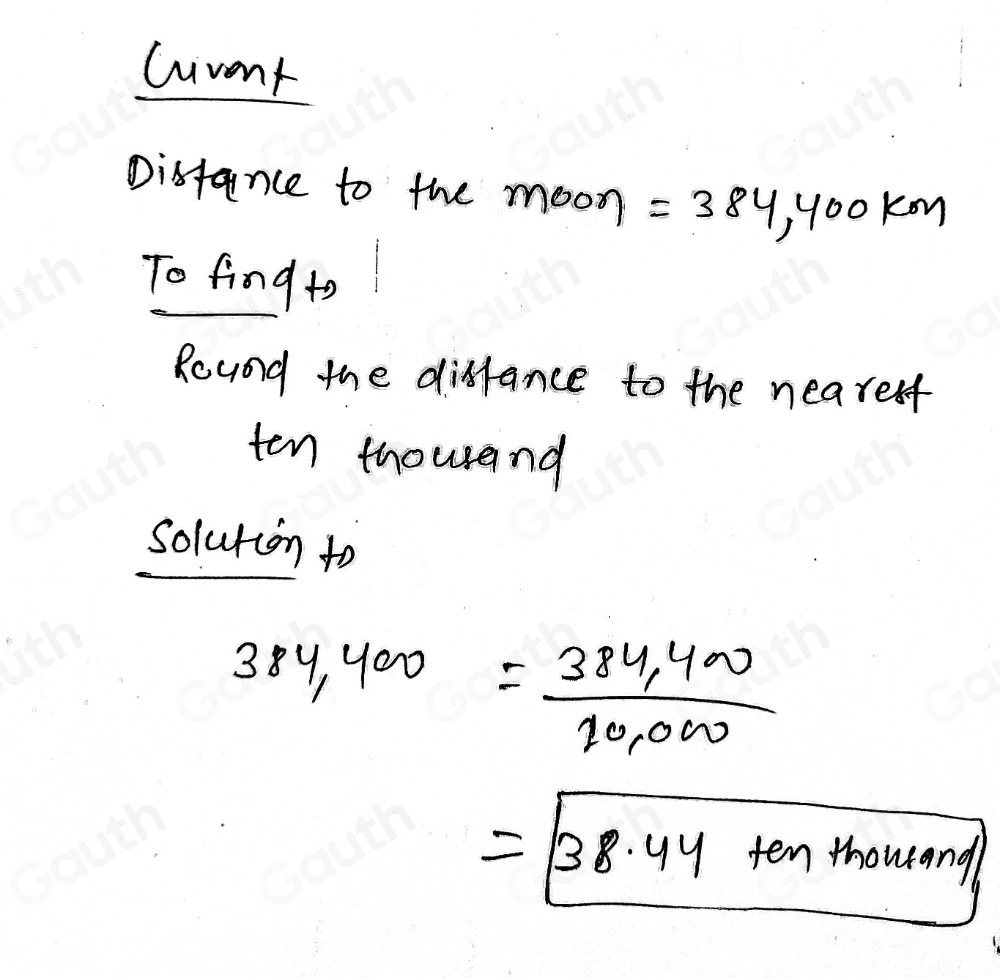 Given
Distance to the moon = 384,400 km
To find to
Round the distance to the nearest
ten thousand
Solution to
384,400 = 384,400
10,000
= 38.44 ten thousand